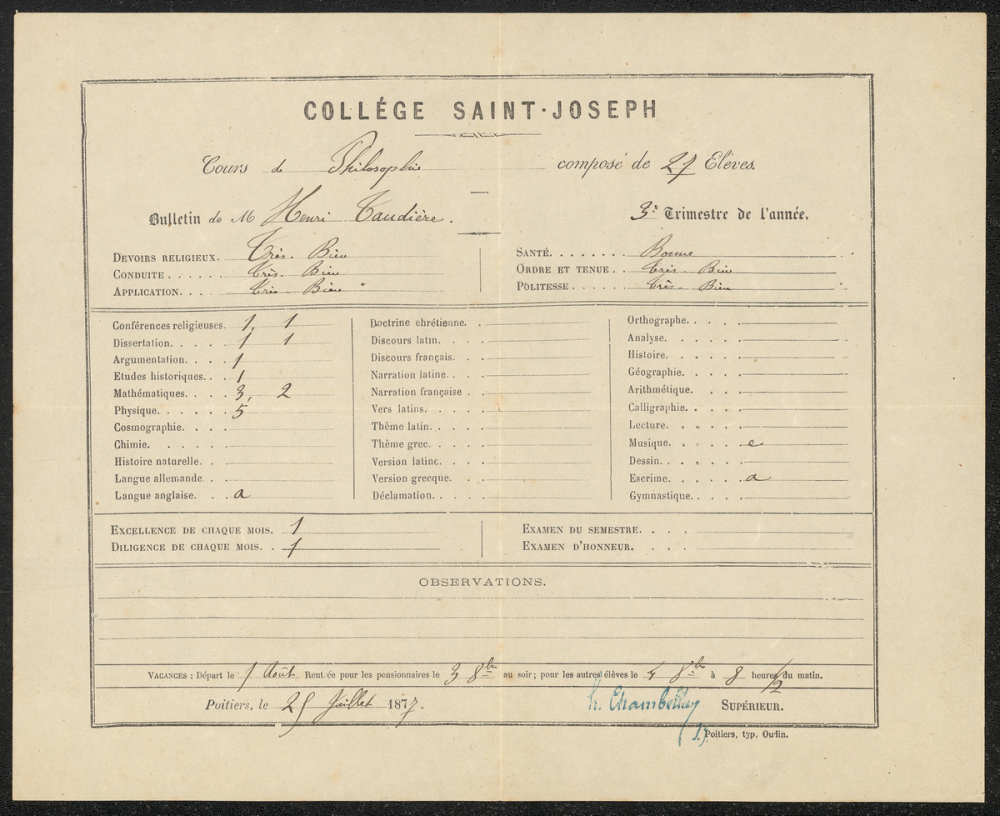 COLLÉGE SAINT-JOSEPH
Cours de Philosophie composé de 27 Elèves.
Bulletin de M Henri Taudière. 3e Trimestre de l'année.
DEVOIRS RELIGIEUX. Très. Bien SANTÉ. Bonne
CONDUITE Très. Bien ORDRE ET TENUE Très. Bien
APPLICATION. Très Bien POLITESSE Très. Bien
Conférences religieuses. 1, 1 Doctrine chrétienne. Orthographe.
Dissertation. 1 1 Discours latin. Analyse.
Argumentation. 1 Discours français. Histoire.
Etudes historiques. 1 Narration latine. Géographie.
Mathématiques. 3, 2 Narration française Arithmétique.
Physique. 5 Vers latins. Calligraphie.
Cosmographie. Thème latin. Lecture.
Chimie. Thème grec. Musique. e
Histoire naturelle. Version latine. Dessin.
Langue allemande. Version grecque. Escrime. a
Langue anglaise. a Déclamation. Gymnastique.
EXCELLENCE DE CHAQUE MOIS. 1 EXAMEN DU SEMESTRE.
DILIGENCE DE CHAQUE MOIS. 1 EXAMEN D'HONNEUR.
OBSERVATIONS.
VACANCES : Départ le 1 Août Rentrée pour les pensionnaires le 3 8bre au soir; pour les autres élèves le 4 8bre à 8 heures 1/2 du matin.
Poitiers, le Juillet 1877. SUPÉRIEUR.
Poitiers, typ. Oudin.